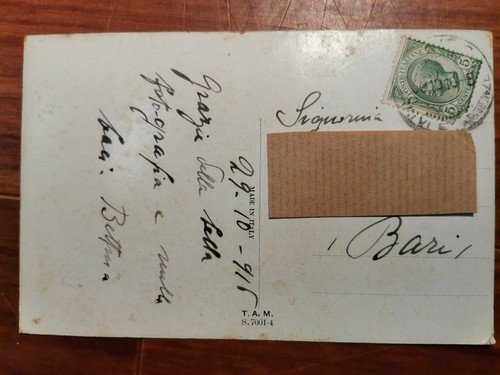 29-10-915
Grazie della bella
fotografia e mille
baci. Bettina
MADE IN ITALY
T. A. M.
S. 7001-4
Signorina
Bari
5
5